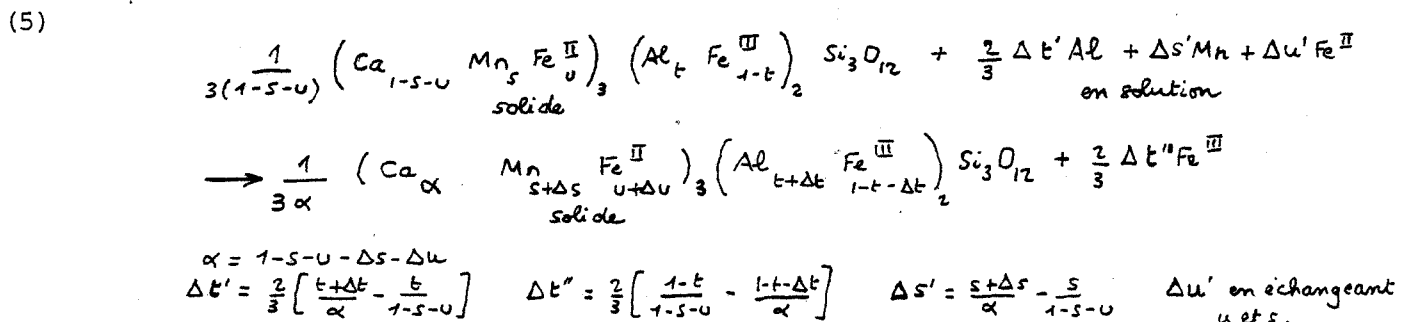 (5)
1/3(1-s-u) (Ca_{1-s-u} Mn_s Fe^{II}_u)_3 (Al_t Fe^{III}_{1-t})_2 Si_3O_{12} + 2/3 Δt' Al + Δs' Mn + Δu' Fe^{II}
solide en solution
⟶ 1/3α (Ca_α Mn_{s+Δs} Fe^{II}_{u+Δu})_3 (Al_{t+Δt} Fe^{III}_{1-t-Δt})_2 Si_3O_{12} + 2/3 Δt'' Fe^{III}
solide
α = 1-s-u-Δs-Δu
Δt' = 2/3 [t+Δt/α - t/1-s-u] Δt'' = 2/3 [1-t/1-s-u - 1-t-Δt/α] Δs' = s+Δs/α - s/1-s-u Δu' en échangeant
u et s.